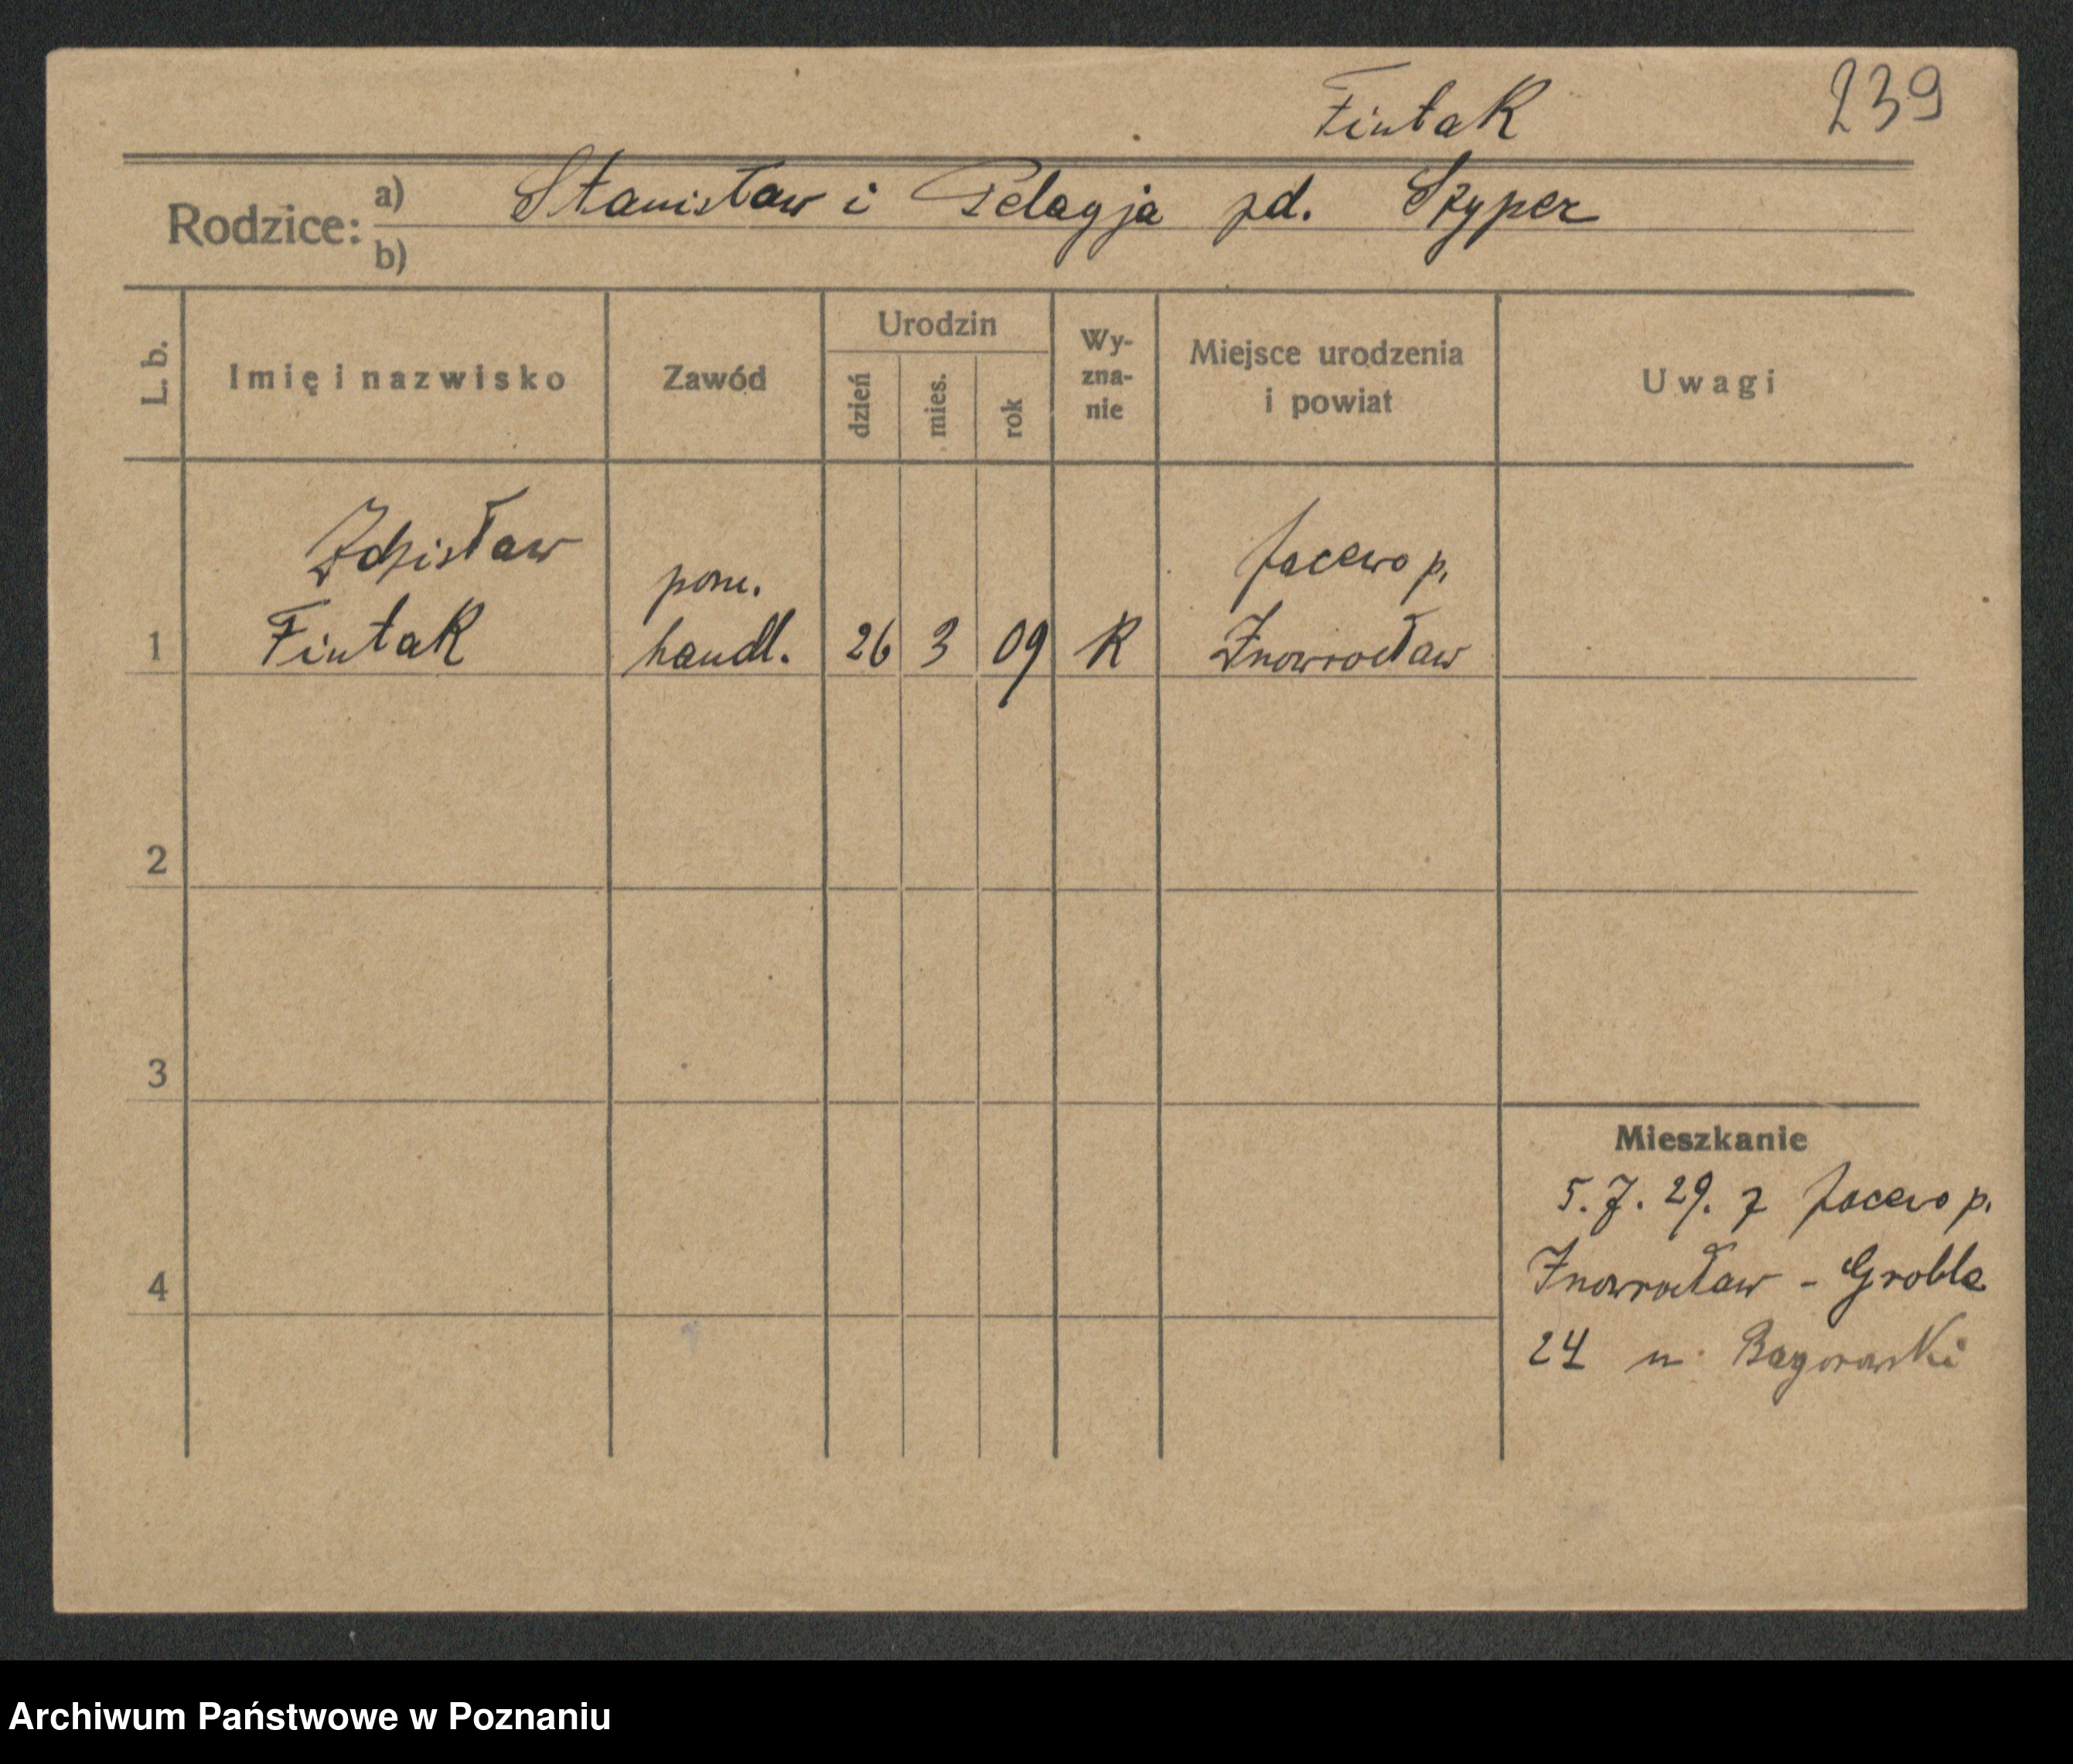 Fintak 239
Rodzice: a) Stanisław i Pelagja zd. Szyper
b)
L. b. Imię i nazwisko Zawód Urodzin dzień mies. rok Wy-zna-nie Miejsce urodzenia i powiat Uwagi
Zdzisław pom. Jacewo p.
1 Fintak handl. 26 3 09 R Inowrocław
2
3
Mieszkanie
5.7.29. z Jacewo p.
4 Inowrocław - Grobla
24 u
Archiwum Państwowe w Poznaniu